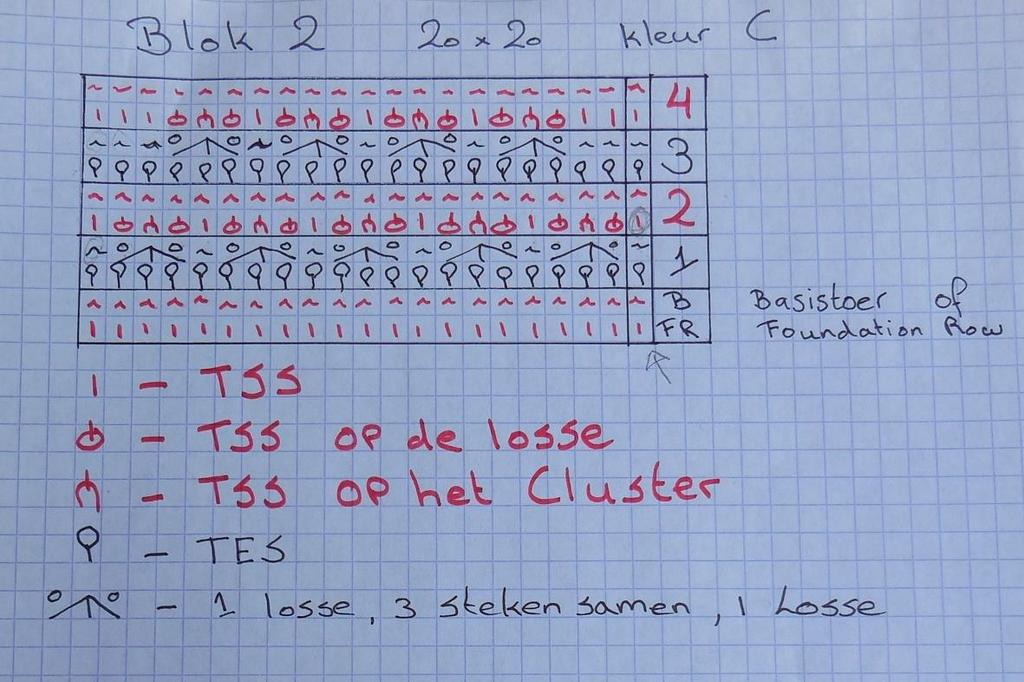 Blok 2 20 x 20 kleur C
4
3
2
1
B
FR
Basistoer of
Foundation Row
| - TSS
- TSS op de losse
- TSS op het Cluster
- TES
- 1 losse, 3 steken samen, 1 Losse